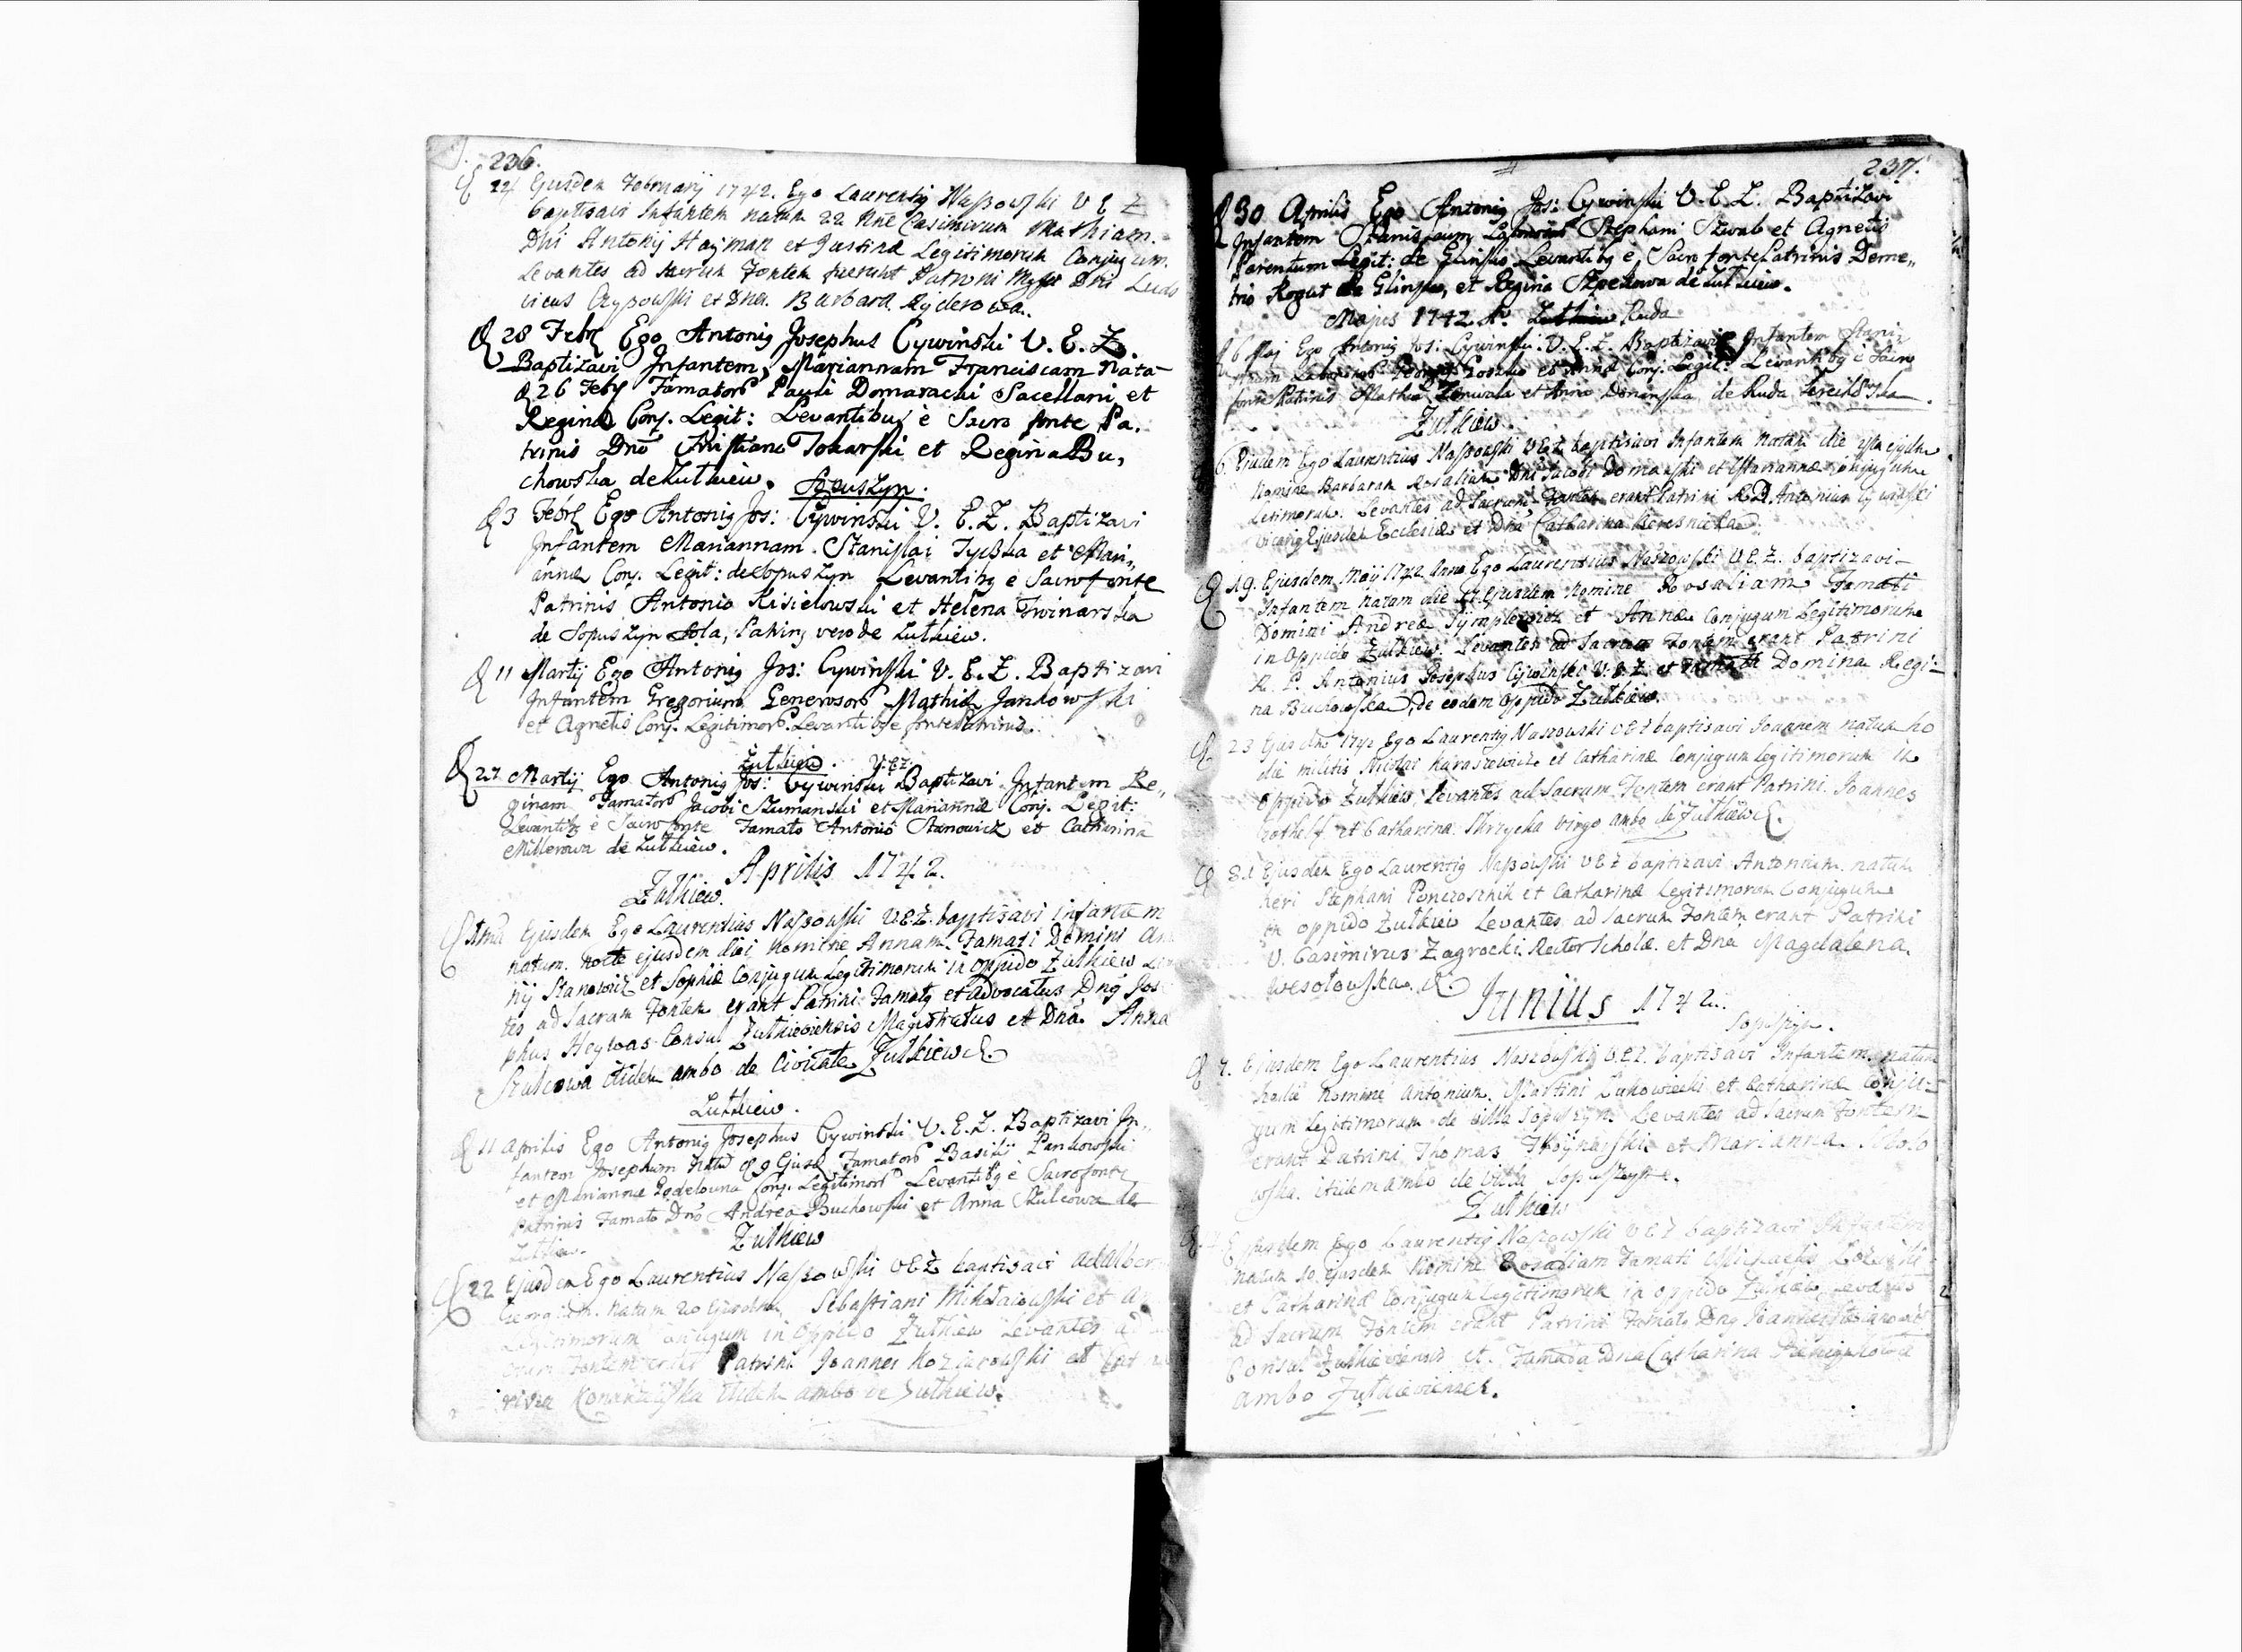 236.
24 Ejusdem Februarij 1742. Ego Laurentig Naszowski V E Z
baptisavi Infantem natum 22 Casimirum Mathiam.
Dni Antonij Hayman et Justinæ Legitimorum Conjugum.
Levantes ad sacrum Fontem fuerunt Patrini Dni Ludo
vicus Czyzowski et Dna. Barbara Ryderowa.
28 Febr Ego Antonig Josephus Cywinski V. E. Z.
Baptizavi Infantem Mariannam Franciscam Nata
d 26 Febr Famator Pauli Domaracki Sacellani et
Regina Conj. Legit: Levantibus è Sacro fonte Pa.
trinis Dno Christiano Tokarski et Regina Bu,
chowska de Zulkiew. Sopuszyn.
3 Febr Ego Antonig Jos: Cywinski V. E. Z. Baptizavi
Infantem Mariannam. Stanislai Tyczka et Mari,,
annæ Conj. Legit: de Sopuszyn Levantibg e Sacro fonte
Patrinis Antonio Kisielowski et Helena Twinarska
de Sopuszyn Sola, Patring vero de Zulkiew.
11 Martij Ego Antonig Jos: Cywinski V. E. Z. Baptizavi
Infantem Gregorium Generosor Mathiæ Jankowski
et Agnetis Conj. Legitimor. Levantibg e fonte Patrinis.
Zulkiew. V.E.Z.
27 Martij Ego Antonig Jos: Cywinski Baptizavi Infantem Re,,
ginam Famator Jacobi Szumanski et Mariannæ Conj. Legit:
Levantibg è Sacro fonte Famato Antonio Stanowicz et Catharina
Millerowa de Zulkiew.
Aprilis 1742.
Zulkiew.
Ejusdem Ego Laurentius Naszowski V.E.Z. baptisavi infantem
natam nocte ejusdem diei nomine Annam. Famati Domini
nij Stanowicz et Sophiæ Conjugum Legitimorum in oppido Zulkiew
tes ad Sacrum Fontem erant Patrini Famatg et Advocatus Dng Jos
phus Heywas Consul Zulkieviensis Magistratus et Dna Anna
Szulcowa itidem ambo de Civitate Zulkiew.
Zulkiew.
11 Aprilis Ego Antonig Josephus Cywinski V. E. Z. Baptizavi In,,
fantem Josephum Natu d 9 Ejusd Famator Basilij Pankowski
et Mariannæ Conj. Legitimor Levantibg è Sacro fonte
Patrinis Famato Dno Andrea Buchowski et Anna Szulcowa de
Zulkiew.
Zulkiew
22 Ejusdem Ego Laurentius Naszowski V E Z baptisavi Adalber
Georgium. natum 20 Ejusdem Sebastiani Mikolaiowski et
Legitimorum Conjugum in Oppido Zulkiew Levantes
crum Fontem erant Patrini Joannes Koziarowski et
itidem ambo de Zulkiew.
237.
30 Aprilis Ego Antonig Jos: Cywinski V. E. Z. Baptizavi
Infantem Stanislaum Stephani Szwab et Agnetis
Parentum Legit: de Glinsko Levantibg è Sacro fonte Patrinis Deme,,
trio Rogut de Glinsko, et Regina de Zulkiew.
Majus 1742 Ruda
6 Maj Ego Antonig Jos: Cywinski V. E. Z. Baptizavi Infantem Stani
slaum et Anna Conj. Legit: Levantibg è Sacro
fonte Patrinis Mathia et Anna de Ruda
Zulkiew.
6. Ejusdem Ego Laurentius Naszowski V E Z baptisavi Infantem natam die
nomine Barbaram Rosaliam Dni Jacobi Domanski et Mariannæ Conjugum
Legitimorum. Levantes ad Sacrum Fontem erant Patrini R. D. Antonius Cywinski
Vicarig Ejusdem Ecclesiæ et Dna Catharina
19. Ejusdem Maij 1742 Anno Ego Laurentius Naszowski V.E.Z. baptizavi
Infantem natam die Ejusdem nomine Rosaliam Famati
Domini Andreæ et Annæ Conjugum Legitimorum
in Oppido Zulkiew. Levantes ad Sacrum Fontem erant Patrini
R. P. Antonius Josephus Cywinski V.E.Z. et Domina Regi-
na Buchowska, de eodem Oppido Zulkiew.
23 Ejusdem 1742 Ego Laurentig Naszowski V E Z baptisavi Joannem natum ho
die militis Nicolai Karaszewicz et Catharinæ Conjugum Legitimorum in
Oppido Zulkiew, Levantes ad Sacrum Fontem erant Patrini Joannes
et Catharina Skrzycka virgo ambo de Zulkiew.
31 Ejusdem Ego Laurentig Naszowski V E Z baptizavi Antonium. natum
heri Stephani Ponczosznik et Catharinæ Legitimorum Conjugum
in oppido Zulkiew Levantes ad Sacrum Fontem erant Patrini
V. Casimirus Zagrocki Rector Scholæ. et Dna Magdalena
Wesolowska.
Junius 1742.
Sopuszyn.
7. Ejusdem Ego Laurentius Naszowski V.E.Z. baptisavi Infantem natum
hodie nomine Antonium. Martini Lukowiecki et Catharinæ Conju-
gum Legitimorum de villa Sopuszyn. Levantes ad Sacrum Fontem
erant Patrini Thomas et Marianna
wska. itidem ambo de Villa Sopuszyn.
Zulkiew
Ejusdem Ego Laurentig Naszowski V E Z baptizavi Infantem
natam 10 ejusdem nomine Rosaliam Famati Michaelis
et Catharinæ Conjugum Legitimorum in oppido Zulkiew, Levantes
ad Sacrum Fontem erant Patrini Famatg Dng Joannes
Consul Zulkieviensis et Famata Dna Catharina
ambo Zulkievienses.